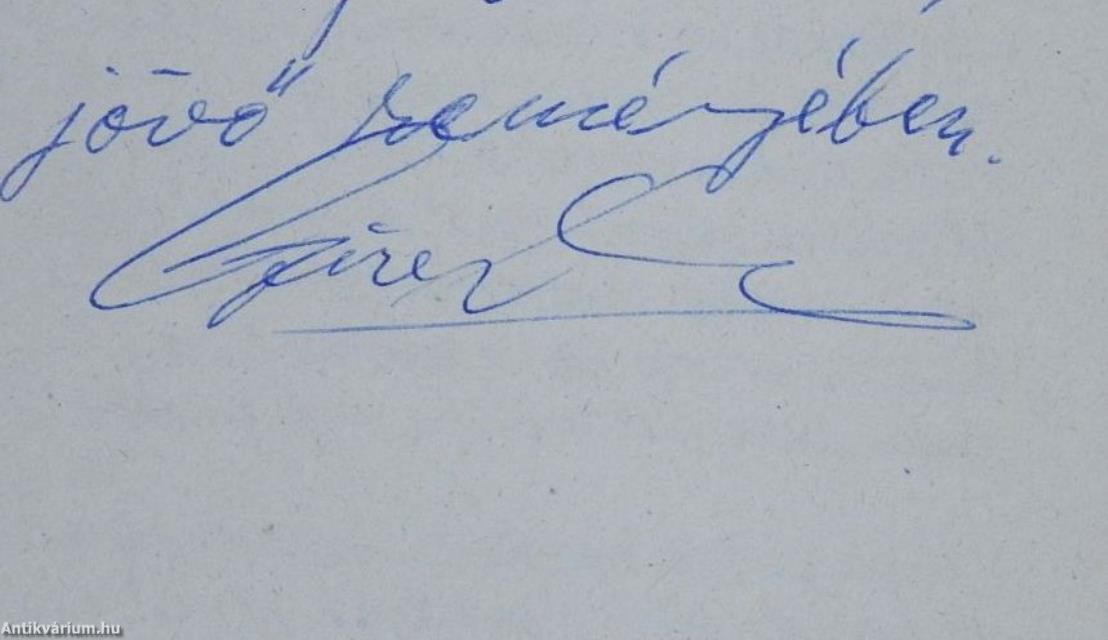 jövő reményében.
Antikvárium.hu